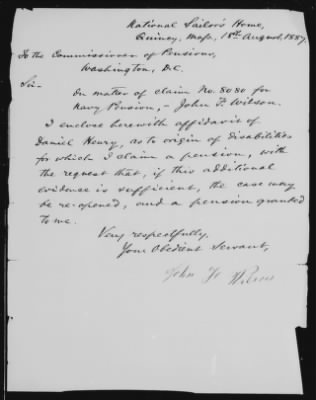 National Sailor's Home,
Quincy, Mass, 18th August, 1887.
To the Commissioner of Pensions,
Washington, D.C.
Sir-
In matter of claim No. 8080 for
Navy Pension, - John F. Wilson.
I enclose herewith affidavit of
Daniel Henry, as to origin of disabilities
for which I claim a pension, with
the request that, if this additional
evidence is sufficient, the case may
be re-opened, and a pension granted
to me.
Very respectfully,
Your Obedient Servant,
John F Wilson